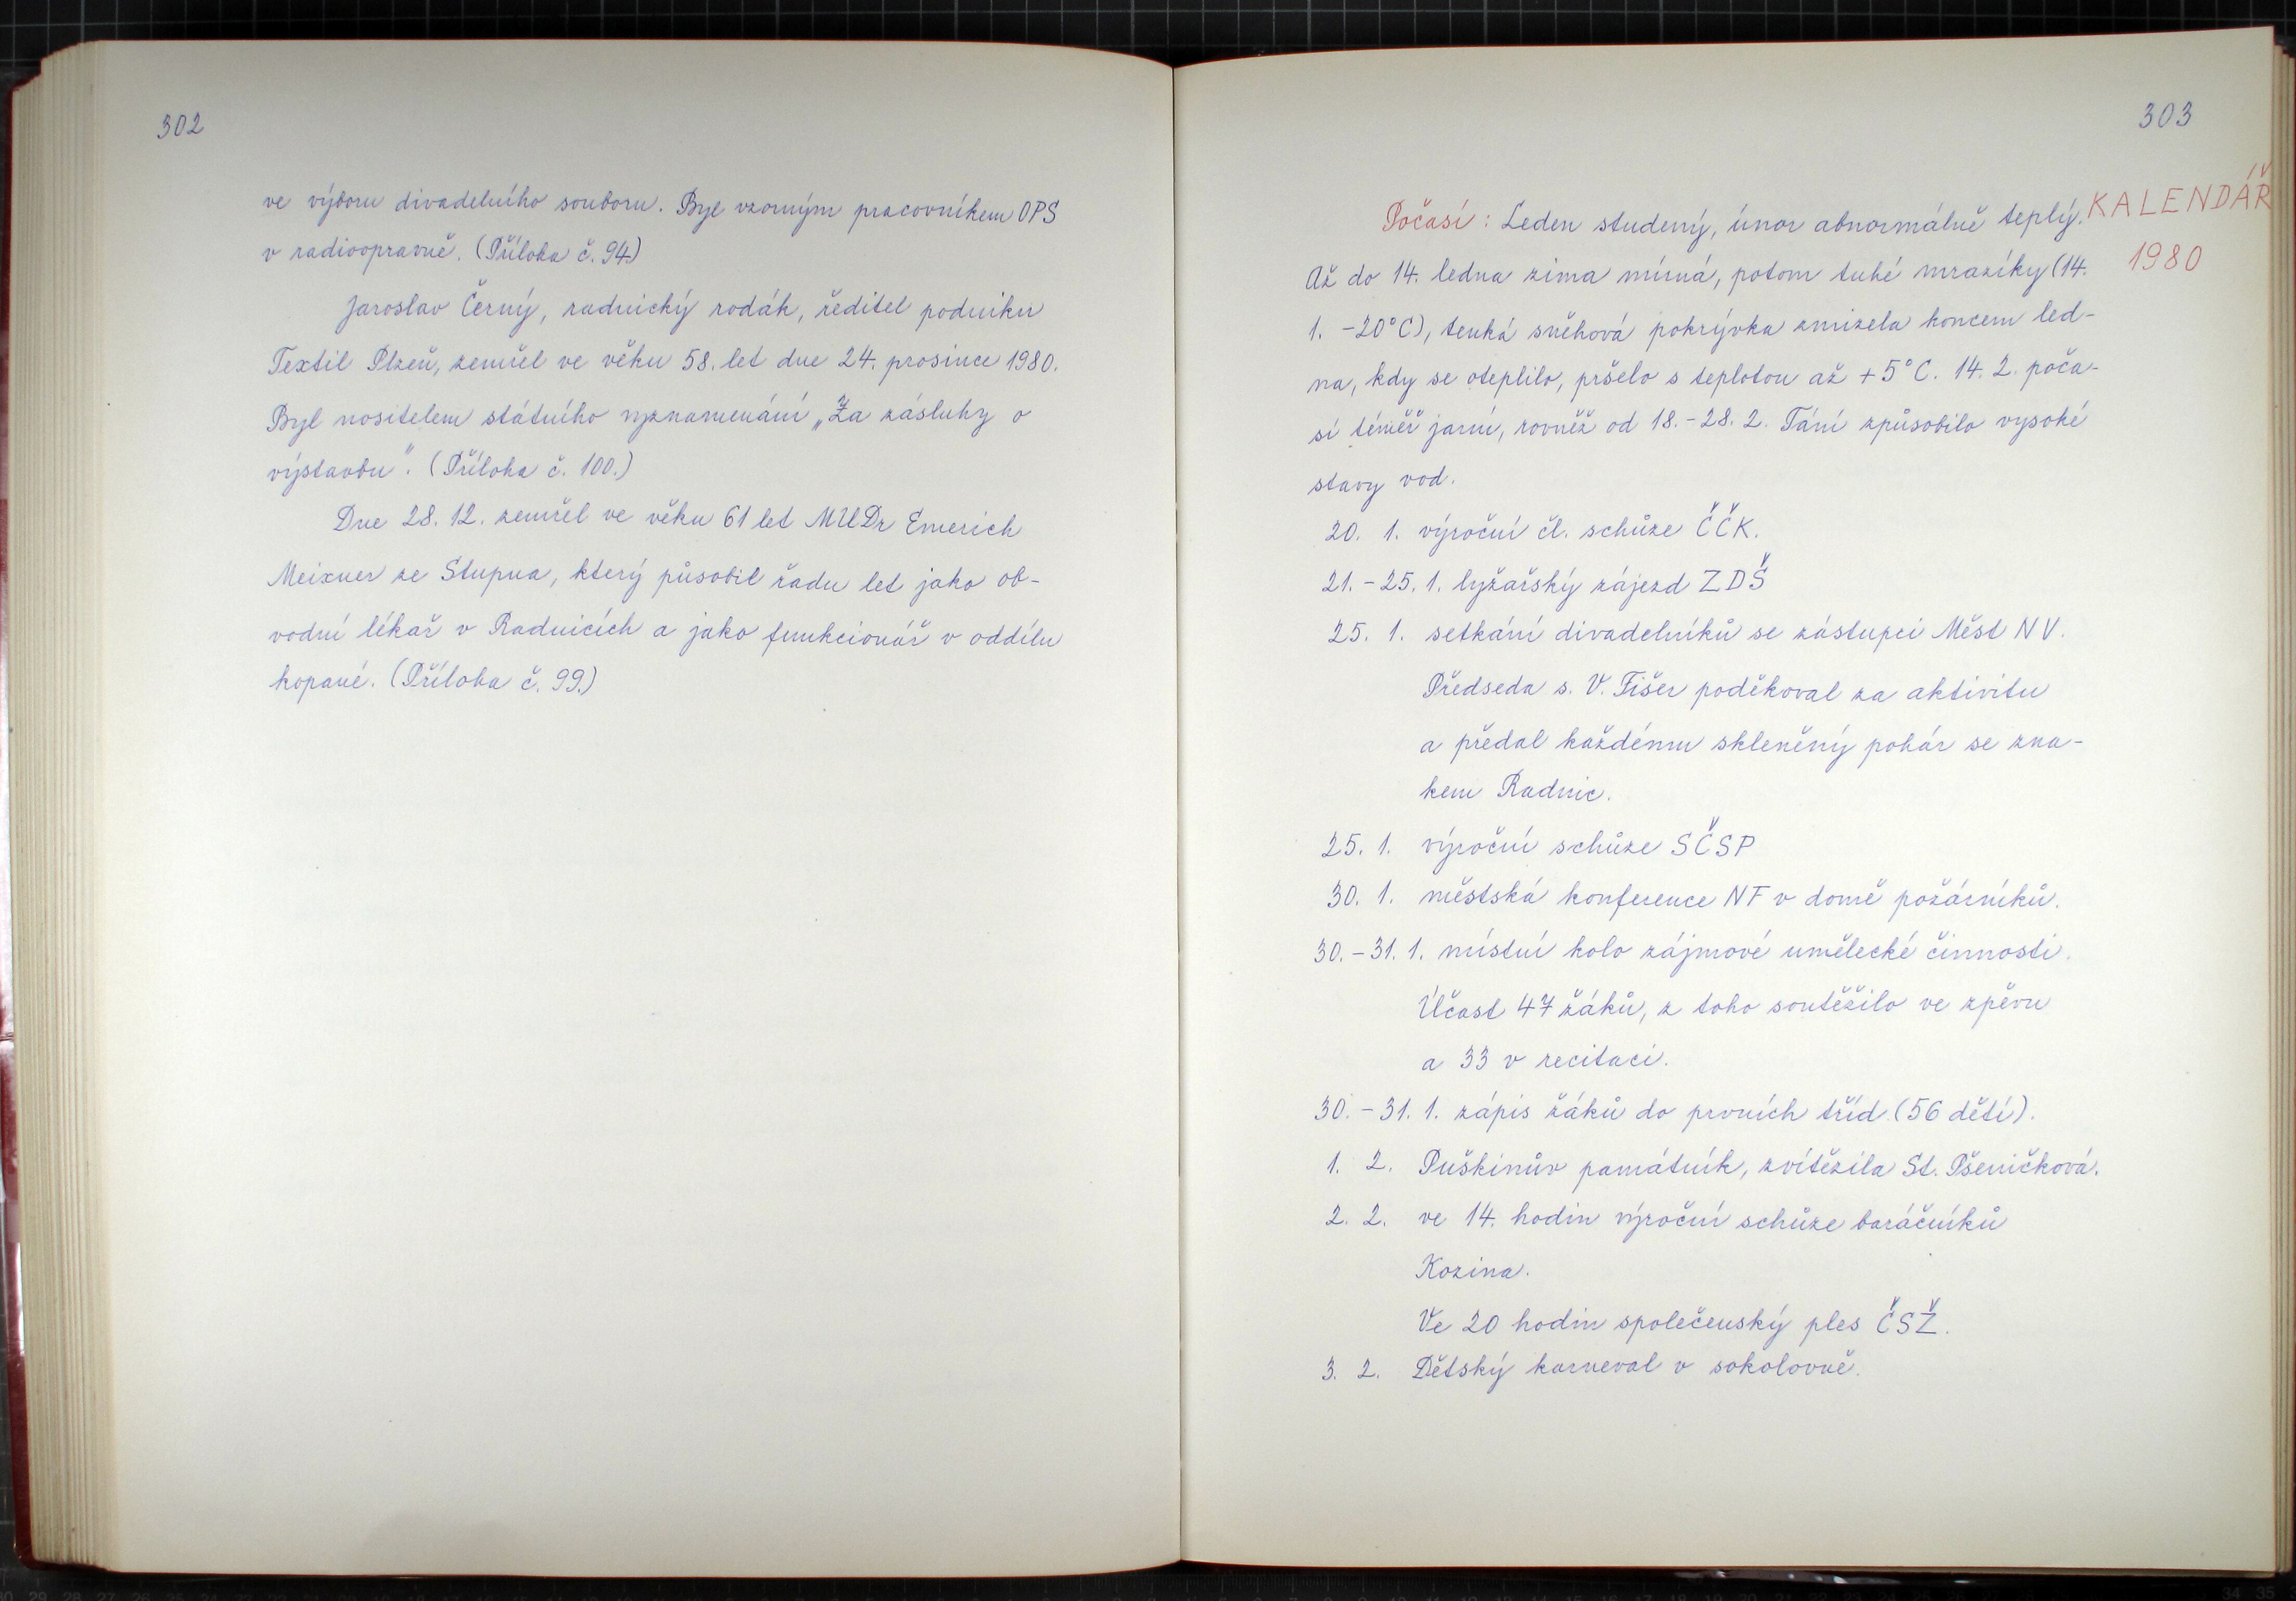 302
ve výboru divadelního souboru. Byl vzorným pracovníkem OPS
v radioopravně. (Příloha č. 94)
Jaroslav Černý, radnický rodák, ředitel podniku
Textil Plzeň, zemřel ve věku 58. let dne 24. prosince 1980.
Byl nositelem státního vyznamenání „Za zásluhy o
výstavbu". (Příloha č. 100.)
Dne 28. 12. zemřel ve věku 61 let MUDr Emerich
Meixner ze Stupna, který působil řadu let jako ob-
vodní lékař v Radnicích a jako funkcionář v oddílu
kopané. (Příloha č. 99.)
303
KALENDÁŘ
1980
Počasí: Leden studený, únor abnormálně teplý.
Až do 14. ledna zima mírná, potom tuhé mrazíky (14.
1. -20°C), tenká sněhová pokrývka zmizela koncem led-
na, kdy se oteplilo, pršelo s teplotou až +5°C. 14. 2. poča-
sí téměř jarní, rovněž od 18.-28. 2. Tání způsobilo vysoké
stavy vod.
20. 1. výroční čl. schůze ČČK.
21.-25. 1. lyžařský zájezd ZDŠ
25. 1. setkání divadelníků se zástupci Měst NV.
Předseda s. V. Fišer poděkoval za aktivitu
a předal každému skleněný pohár se zna-
kem Radnic.
25. 1. výroční schůze SČSP
30. 1. městská konference NF v domě požárníků.
30.-31. 1. místní kolo zájmové umělecké činnosti.
Účast 47 žáků, z toho soutěžilo ve zpěvu
a 33 v recitaci.
30.-31. 1. zápis žáků do prvních tříd (56 dětí).
1. 2. Puškinův památník, zvítězila St. Pšeničková.
2. 2. ve 14. hodin výroční schůze baráčníků
Kozina.
Ve 20 hodin společenský ples ČSŽ.
3. 2. Dětský karneval v sokolovně.